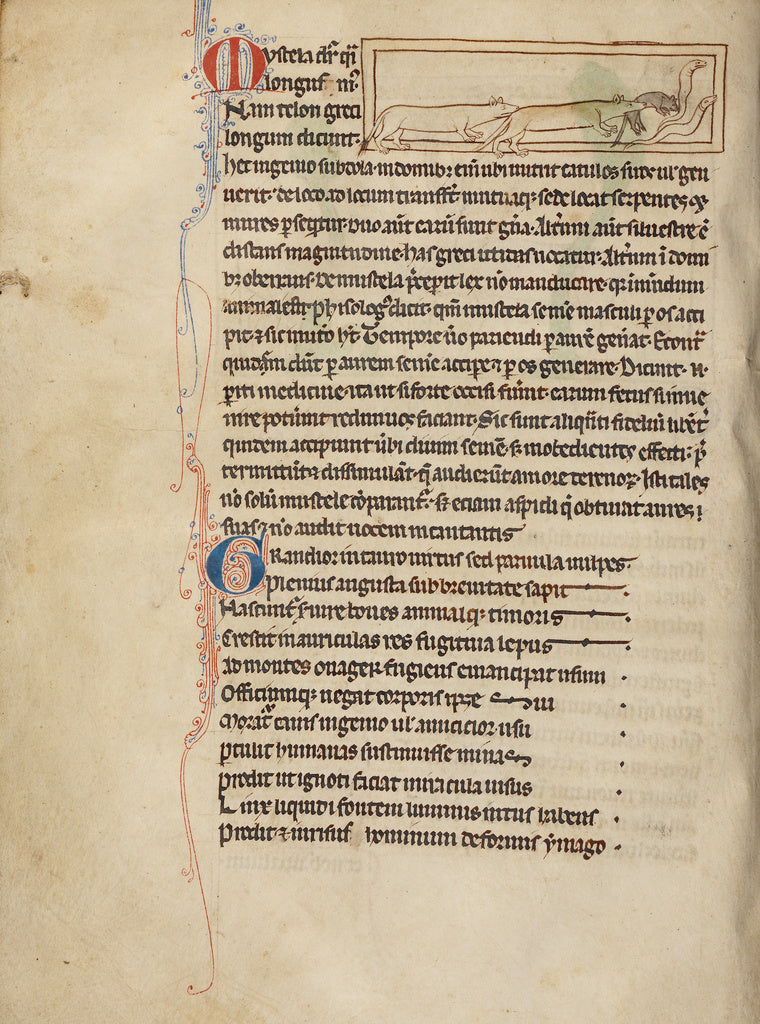 Mustela dr̄ q̄si
longus m̄⁹
Nam telon greci
longum dicunt·
hec ingenio subdola· in domibȝ enī ubi nutrit catulos suos ut gen
uerit· de loco ad locum transfert· mutataqȝ sede locat· serpentes ⁊
mures ꝑseqitur· duo aūt earū sunt gn̄a· Alterum aūt siluestre ē
distans magnitudine· has greci ictidas uocant· Alterum ī domi
bȝ oberrans· De mustela p̄cepit lex nō manducare· qr̄ inmūdum
animal est· phisiolog⁹ dicit· qm̄ mustela semē masculi ꝑ os acci
pit· ⁊ sic in utero hȝ· Tempore ūo pariendi ꝑ aurē gen̄at· Econtr̄
quidam dn̄t ꝑ aurem semē accipe· ⁊ ꝑ os generare· Dicunt· n̄·
ꝑiti medicine· ita ut si forte occisi fūint· earum fetus si inue
nire potūint rediuiuos faciant· Sic sunt aliqn̄ti fideliū libent̄
quidem accipiunt ūbi diuini semē· sȝ inobedientes effecti· p̄
termittūt ⁊ dissimulāt· q̄ audierūt amore terenoꝝ· Isti tales
nō solū mustele cōparant᷑· sȝ eciam aspidi q̄ obturat aures
suas ⁊ nō audit uocem incantantis
Grandior in tauro uirtus sed paruula uulpes·
Plenius augusta sub breuitate sapit
Nascunt᷑ fuire boues animalqȝ timoris
Crescit in auriculas res fugitiua lepus
Ad montes onager fugiens emancipat usum
Officiumqȝ negat corporis ipse sui
Morat᷑ ciuis ingenio ul̄ amicicior usu
ꝑtulit humanas sustinuisse minas
ꝓredit ut ignoti faciat miracula uisus
Linx liquidi fontem luminis intus habens
ꝓredit· ⁊ in risus hominum deformis ymago